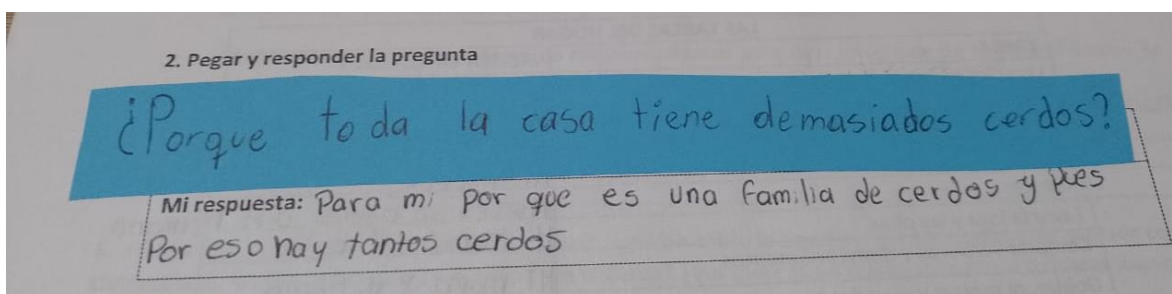 2. Pegar y responder la pregunta
¿Porque toda la casa tiene demasiados cerdos?
Mi respuesta: Para mi por que es una familia de cerdos y pues
Por eso hay tantos cerdos